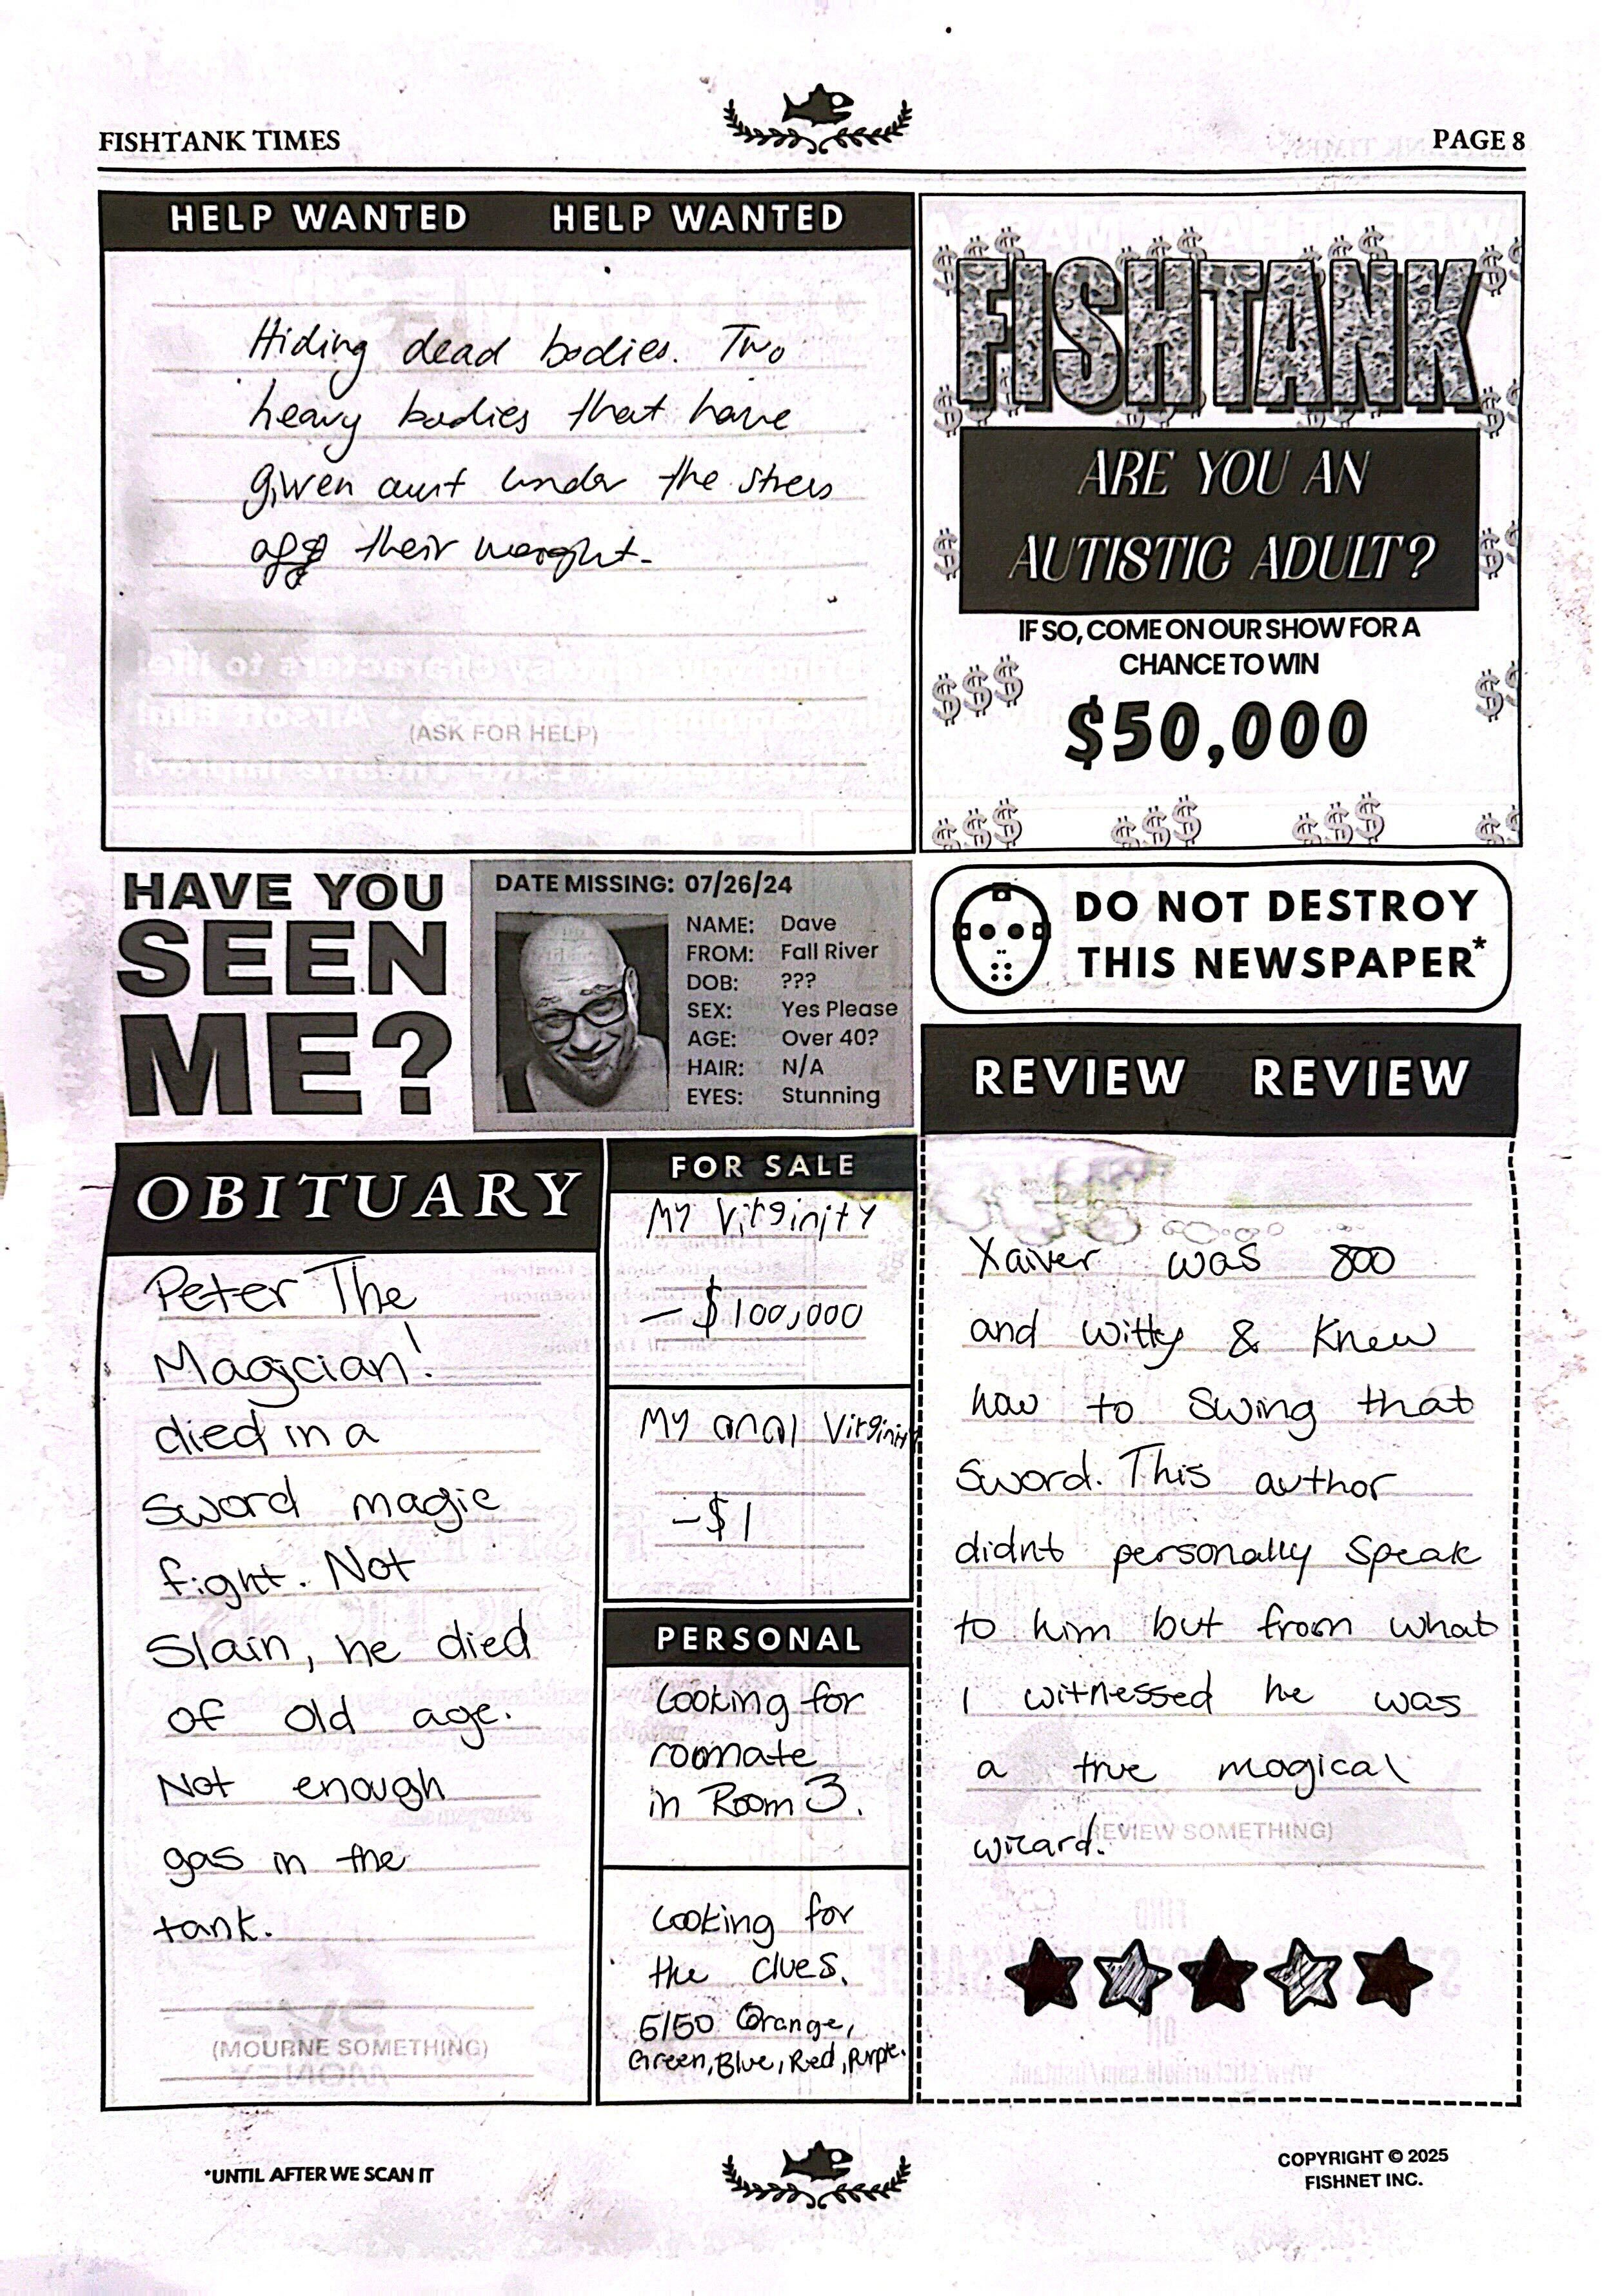 FISHTANK TIMES
PAGE 8
HELP WANTED HELP WANTED
Hiding dead bodies. Two
heavy bodies that have
given out under the stress
of their weight.
(ASK FOR HELP)
FISHTANK
ARE YOU AN
AUTISTIC ADULT?
IF SO, COME ON OUR SHOW FOR A
CHANCE TO WIN
$50,000
HAVE YOU
SEEN
ME?
DATE MISSING: 07/26/24
NAME: Dave
FROM: Fall River
DOB: ???
SEX: Yes Please
AGE: Over 40?
HAIR: N/A
EYES: Stunning
DO NOT DESTROY
THIS NEWSPAPER*
OBITUARY
Peter The
Magician!
died in a
Sword magic
fight. Not
Slain, he died
of old age.
Not enough
gas in the
tank.
(MOURNE SOMETHING)
FOR SALE
My Virginity
- $100,000
My anal Virginity
- $1
PERSONAL
Looking for
roomate
in Room 3.
Looking for
the clues.
5150 Orange,
Green, Blue, Red, Purple.
REVIEW REVIEW
Xaiver was 800
and witty & Knew
how to Swing that
Sword. This author
didnt personally Speak
to him but from what
I witnessed he was
a true magical
wizard.
(REVIEW SOMETHING)
*UNTIL AFTER WE SCAN IT
COPYRIGHT © 2025
FISHNET INC.